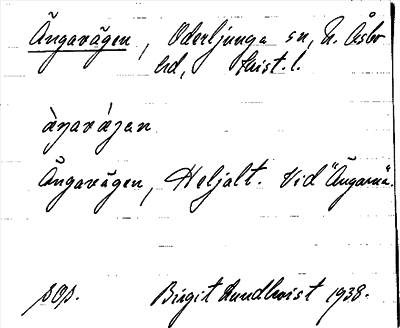 Ängavägen, Oderljunga sn, N. Åsbo
hd, Krist. l.
àŋavàgan
Ängavägen, Heljalt. Vid "Ängarna".
sOs. Birgit Lundkvist 1938.